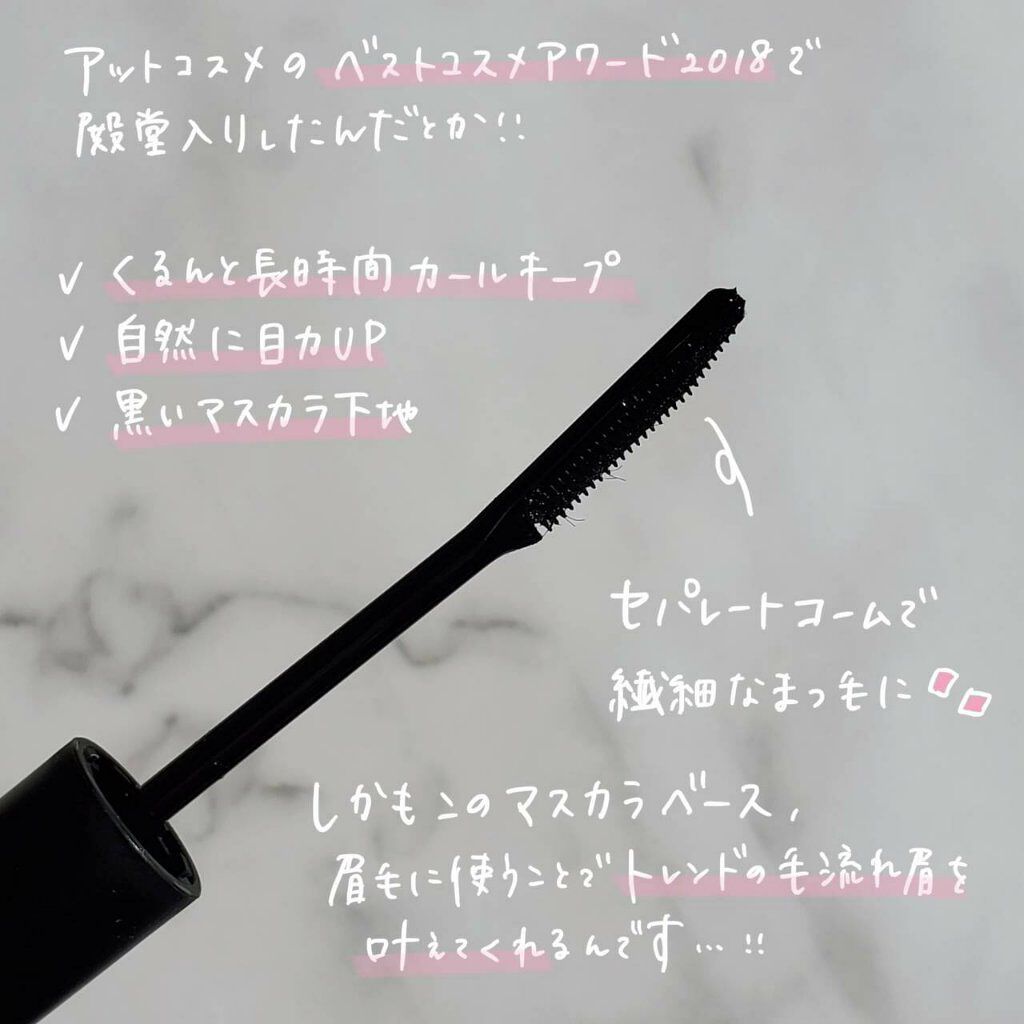 アットコスメのベストコスメアワード2018で
殿堂入りしたんだとか!!
✓ くるんと長時間カールキープ
✓ 自然に目力UP
✓ 黒いマスカラ下地
セパレートコームで
繊細なまつ毛に
しかもこのマスカラベース,
眉毛に使うことでトレンドの毛流れ眉を
叶えてくれるんです…!!